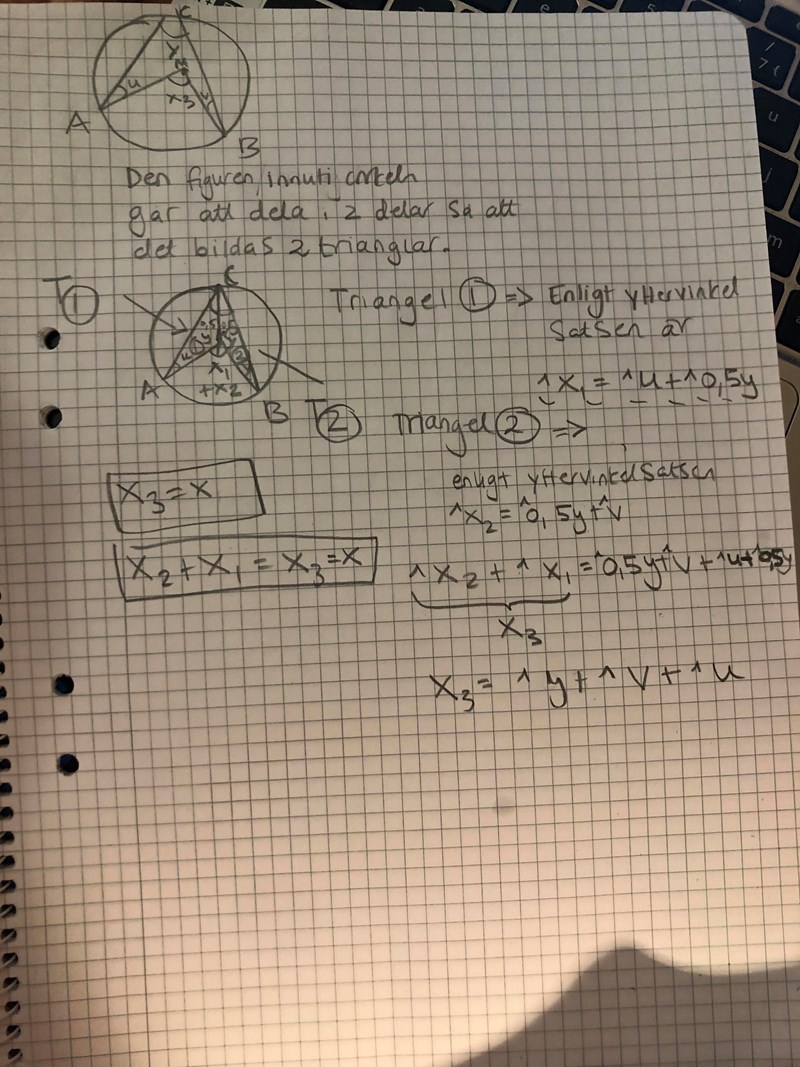 C
y
u
x3
v
A
B
Den figuren innuti cirkeln
går att dela i 2 delar så att
det bildas 2 trianglar.
C
T①
Triangel ① => Enligt yttervinkel
satsen är
^x₁ = ^u + ^0,5y
u
x₁
+x₂
A
B
T②
Triangel ② =>
enligt yttervinkelsatsen
^x₂ = ^0,5y + ^v
x₃ = x
x₂ + x₁ = x₃ = x
^x₂ + ^x₁ = ^0,5y + ^v + ^u + ^0,5y
x₃
x₃ = ^y + ^v + ^u